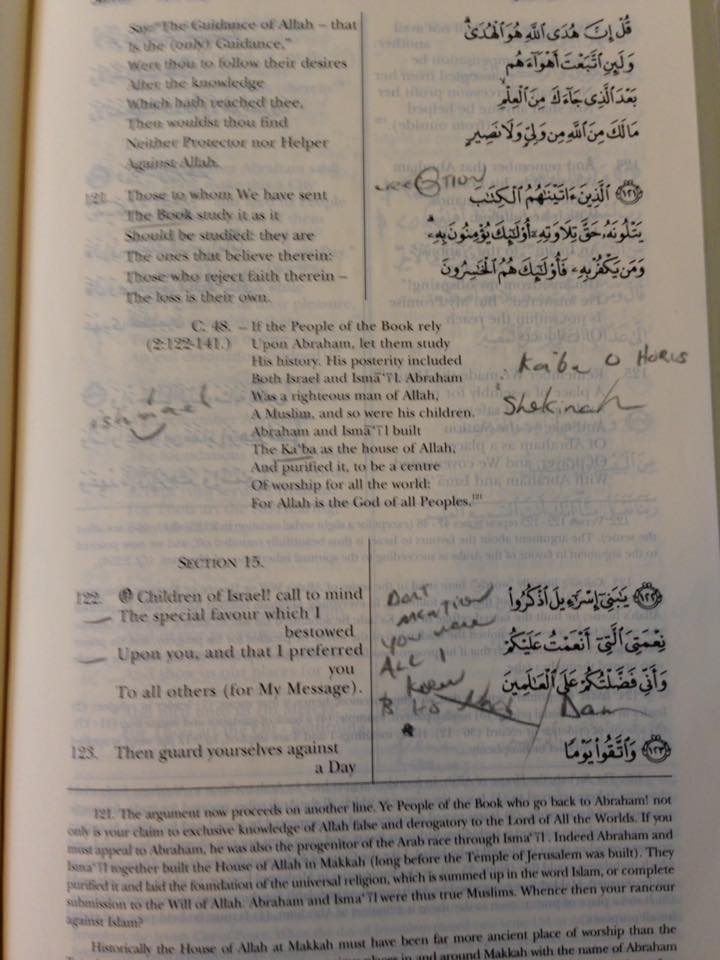 Say: "The Guidance of Allah – that
Is the (only) Guidance,"
Wert thou to follow their desires
After the knowledge
Which hath reached thee,
Then wouldst thou find
Neither Protector nor Helper
Against Allah.
قُلْ إِنَّ هُدَى ٱللَّهِ هُوَ ٱلْهُدَىٰ
وَلَئِنِ ٱتَّبَعْتَ أَهْوَآءَهُم
بَعْدَ ٱلَّذِى جَآءَكَ مِنَ ٱلْعِلْمِ
مَالَكَ مِنَ ٱللَّهِ مِن وَلِىٍّ وَلَا نَصِيرٍ
121. Those to whom We have sent
The Book study it as it
Should be studied: they are
The ones that believe therein:
Those who reject faith therein –
The loss is their own.
١٢١ ٱلَّذِينَ ءَاتَيْنَٰهُمُ ٱلْكِتَٰبَ
يَتْلُونَهُۥ حَقَّ تِلَاوَتِهِۦٓ أُو۟لَٰٓئِكَ يُؤْمِنُونَ بِهِۦ
وَمَن يَكْفُرْ بِهِۦ فَأُو۟لَٰٓئِكَ هُمُ ٱلْخَٰسِرُونَ
C. 48. – If the People of the Book rely
(2:122-141.) Upon Abraham, let them study
His history. His posterity included
Both Israel and Ismā'īl. Abraham
Was a righteous man of Allah,
A Muslim, and so were his children.
Abraham and Ismā'īl built
The Ka'ba as the house of Allah,
And purified it, to be a centre
Of worship for all the world:
For Allah is the God of all Peoples.121
Ka'ba O Horus
Shekinah
ishmael
SECTION 15.
122. O Children of Israel! call to mind
The special favour which I
bestowed
Upon you, and that I preferred
you
To all others (for My Message).
Dont
mention
you were
ALL !
١٢٢ يَٰبَنِىٓ إِسْرَٰٓءِيلَ ٱذْكُرُوا۟
نِعْمَتِىَ ٱلَّتِىٓ أَنْعَمْتُ عَلَيْكُمْ
وَأَنِّى فَضَّلْتُكُمْ عَلَى ٱلْعَٰلَمِينَ
123. Then guard yourselves against
a Day
١٢٣ وَٱتَّقُوا۟ يَوْمًا
121. The argument now proceeds on another line. Ye People of the Book who go back to Abraham! not
only is your claim to exclusive knowledge of Allah false and derogatory to the Lord of All the Worlds. If you
must appeal to Abraham, he was also the progenitor of the Arab race through Isma'īl. Indeed Abraham and
Isma'īl together built the House of Allah in Makkah (long before the Temple of Jerusalem was built). They
purified it and laid the foundation of the universal religion, which is summed up in the word Islam, or complete
submission to the Will of Allah. Abraham and Isma'īl were thus true Muslims. Whence then your rancour
against Islam?
Historically the House of Allah at Makkah must have been far more ancient place of worship than the
places in and around Makkah with the name of Abraham